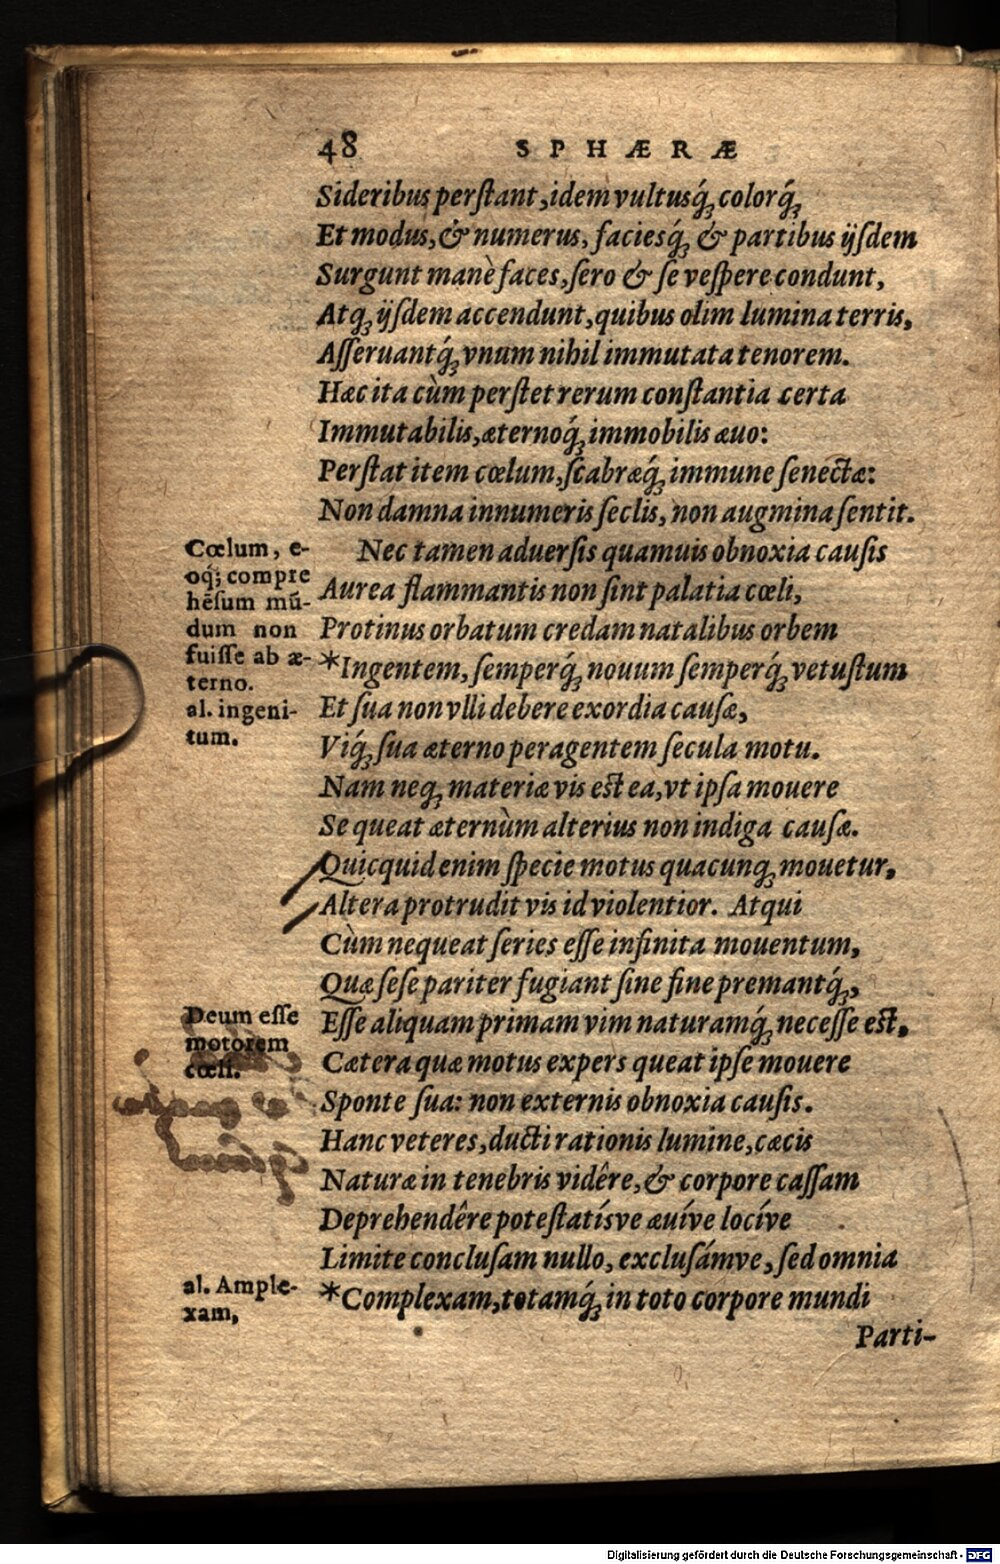 48 SPHÆRÆ
Sideribus perſtant, idem vultusq́ꝫ colorq́ꝫ
Et modus, & numerus, faciesq́ꝫ & partibus ijſdem
Surgunt manè faces, ſero & ſe veſpere condunt,
Atqꝫ ijſdem accendunt, quibus olim lumina terris,
Aſſeruantq́ꝫ vnum nihil immutata tenorem.
Hæc ita cùm perſtet rerum conſtantia certa
Immutabilis, æternoq́ꝫ immobilis æuo:
Perſtat item cœlum, ſcabræq́ꝫ immune ſenectæ:
Non damna innumeris ſeclis, non augmina ſentit.
Nec tamen aduerſis quamuis obnoxia cauſis
Aurea flammantis non ſint palatia cœli,
Protinus orbatum credam natalibus orbem
*Ingentem, ſemperq́ꝫ nouum ſemperq́ꝫ vetuſtum
Et ſua non vlli debere exordia cauſæ,
Viq́ꝫ ſua æterno peragentem ſecula motu.
Nam neqꝫ materiæ vis est ea, vt ipſa mouere
Se queat æternùm alterius non indiga cauſæ.
Quicquid enim ſpecie motus quacunqꝫ mouetur,
Altera protrudit vis id violentior. Atqui
Cùm nequeat ſeries eſſe infinita mouentum,
Quæ ſeſe pariter fugiant ſine fine premantq́ꝫ,
Eſſe aliquam primam vim naturamq́ꝫ neceſſe est,
Cætera quæ motus expers queat ipſe mouere
Sponte ſua: non externis obnoxia cauſis.
Hanc veteres, ducti rationis lumine, cæcis
Naturæ in tenebris vidêre, & corpore caſſam
Deprehendêre poteſtatísve æuíve locíve
Limite concluſam nullo, excluſámve, ſed omnia
*Complexam, totamq́ꝫ in toto corpore mundi
Parti-
Cœlum, e-
oq́ꝫ compre
hẽſum mũ-
dum non
fuiſſe ab æ-
terno.
al. ingeni-
tum.
Deum eſſe
motorem
cœli.
al. Ample-
xam,
Digitalisierung gefördert durch die Deutsche Forschungsgemeinschaft - DFG